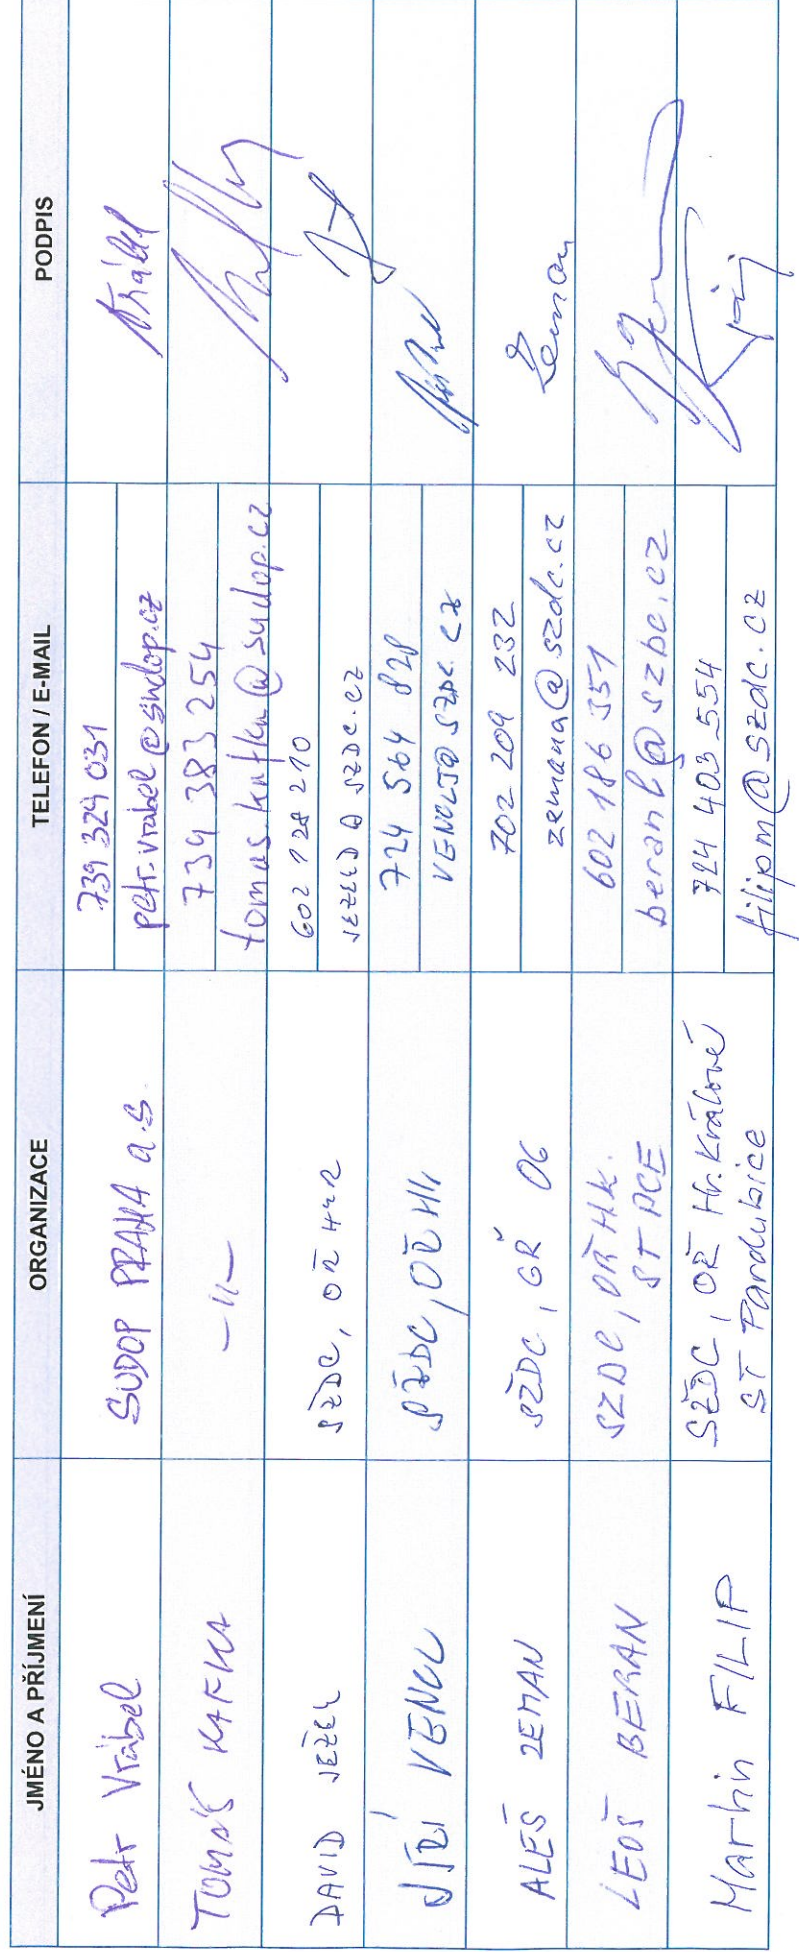 JMÉNO A PŘÍJMENÍ ORGANIZACE TELEFON / E-MAIL PODPIS
Petr Vrábel SUDOP PRAHA a.s. 739 324 031 Vrábel
petr.vrabel@sudop.cz
TOMÁŠ KAFKA -〃- 739 383 254
tomas.kafka@sudop.cz
DAVID JEŽEK SŽDC, OŘ HKR 602 128 210
JEZEKD@SZDC.CZ
JIŘÍ VENCL SŽDC, OŘ HK 724 564 828
VENCLJ@SZDC.CZ
ALEŠ ZEMAN SŽDC, GŘ O6 702 209 232 Zeman
zemana@szdc.cz
LEOŠ BERAN SŽDC, OŘ HK. 602 186 351
ST PCE beranl@szdc.cz
Martin FILIP SŽDC, OŘ Hr. Králové 724 403 554
ST Pardubice filipm@szdc.cz